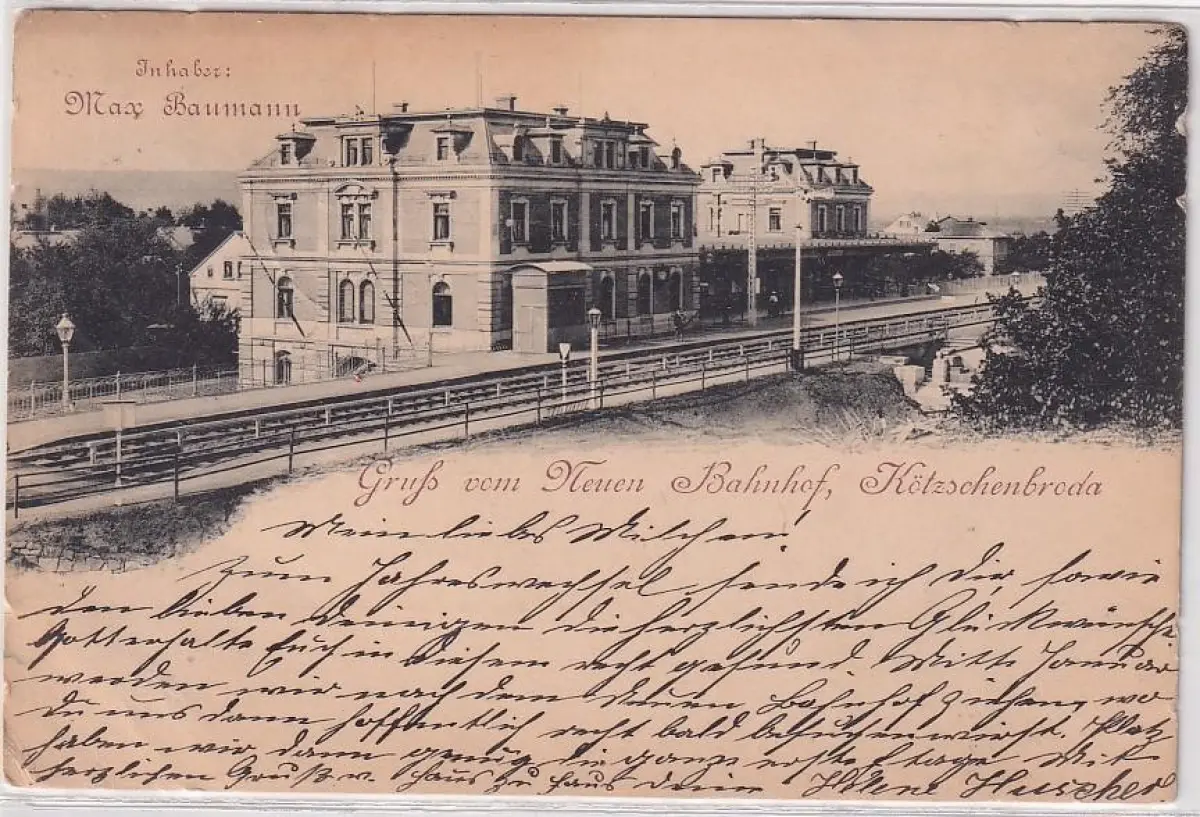 Inhaber:
Max Baumann
Gruß vom Neuen Bahnhof, Kötzschenbroda
Mein liebes Milchen!
Zum Jahreswechsel sende ich Dir, sowie
den lieben Deinigen die herzlichsten Glückwünsche
Gott erhalte Euch in diesem recht gesund. Mitte Januar
werden wir nach dem Neuen Bahnhof ziehen, wo
Du uns dann hoffentlich recht bald besuchen wirst. Platz
haben wir dann genug die ganze erste Etage. Mit
herzlichen Gruß v. Haus zu Haus Deine Helene Huscher.